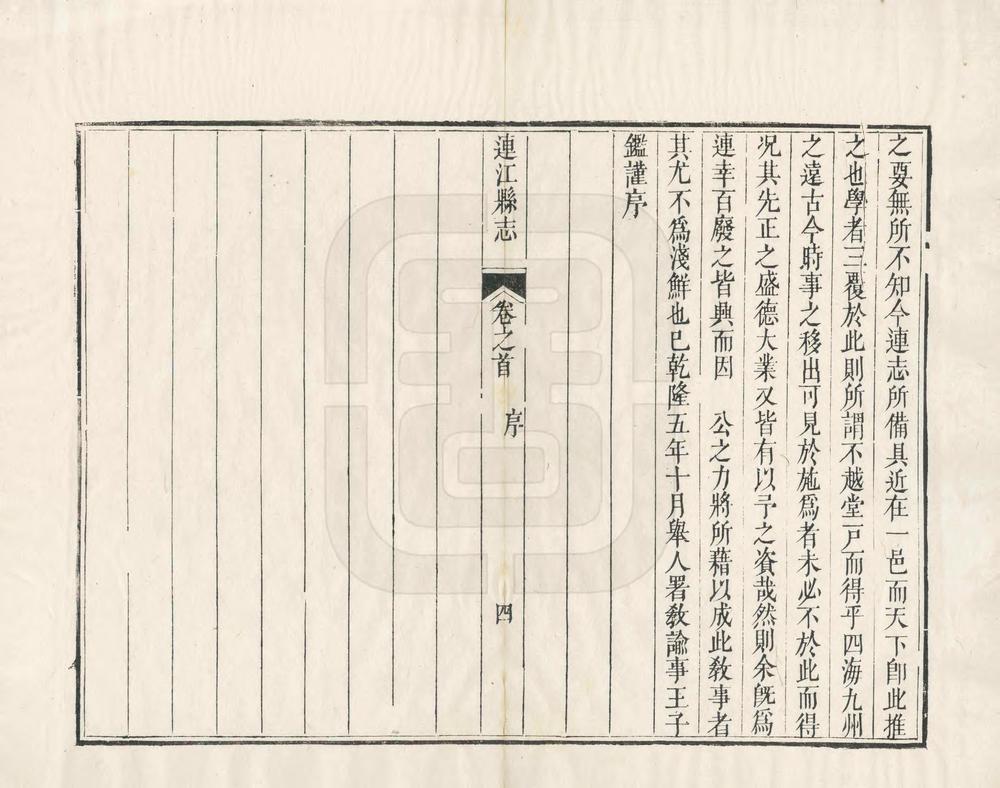 之要無所不知今連志所備具近在一邑而天下卽此推
之也學者三覆於此則所謂不越堂戸而得乎四海九州
之遠古今時事之移出可見於施爲者未必不於此而得
况其先正之盛德大業又皆有以予之資哉然則余旣爲
連幸百廢之皆興而因 公之力將所藉以成此教事者
其尤不爲淺鮮也已乾隆五年十月舉人署教諭事王子
鑑謹序
連江縣志 卷之首 序 四